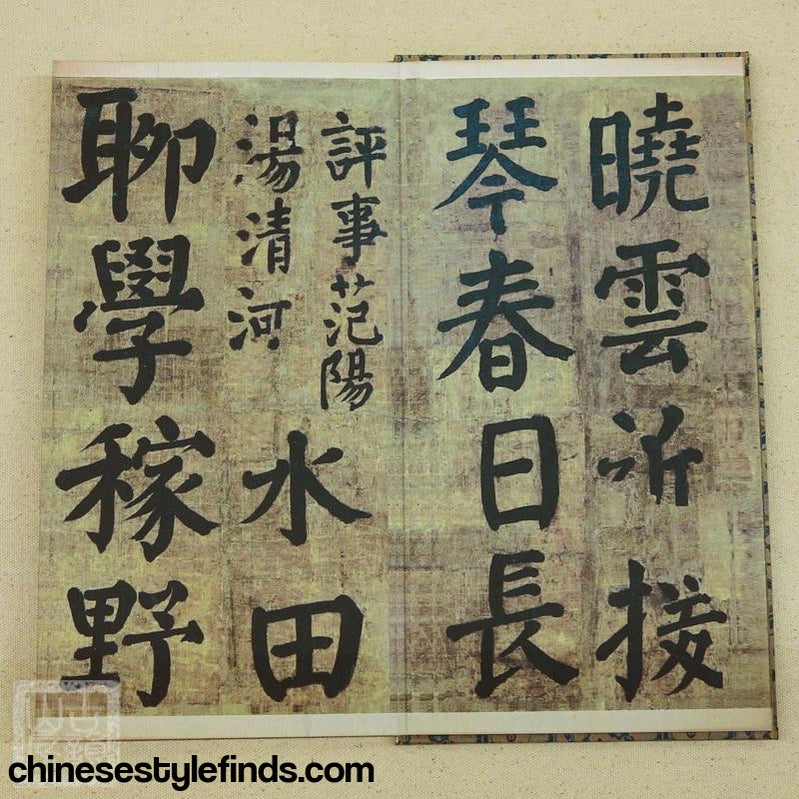 曉雲近援
琴春日長
評事范陽
湯清河
水田
聊學稼野
chinesestylefinds.com